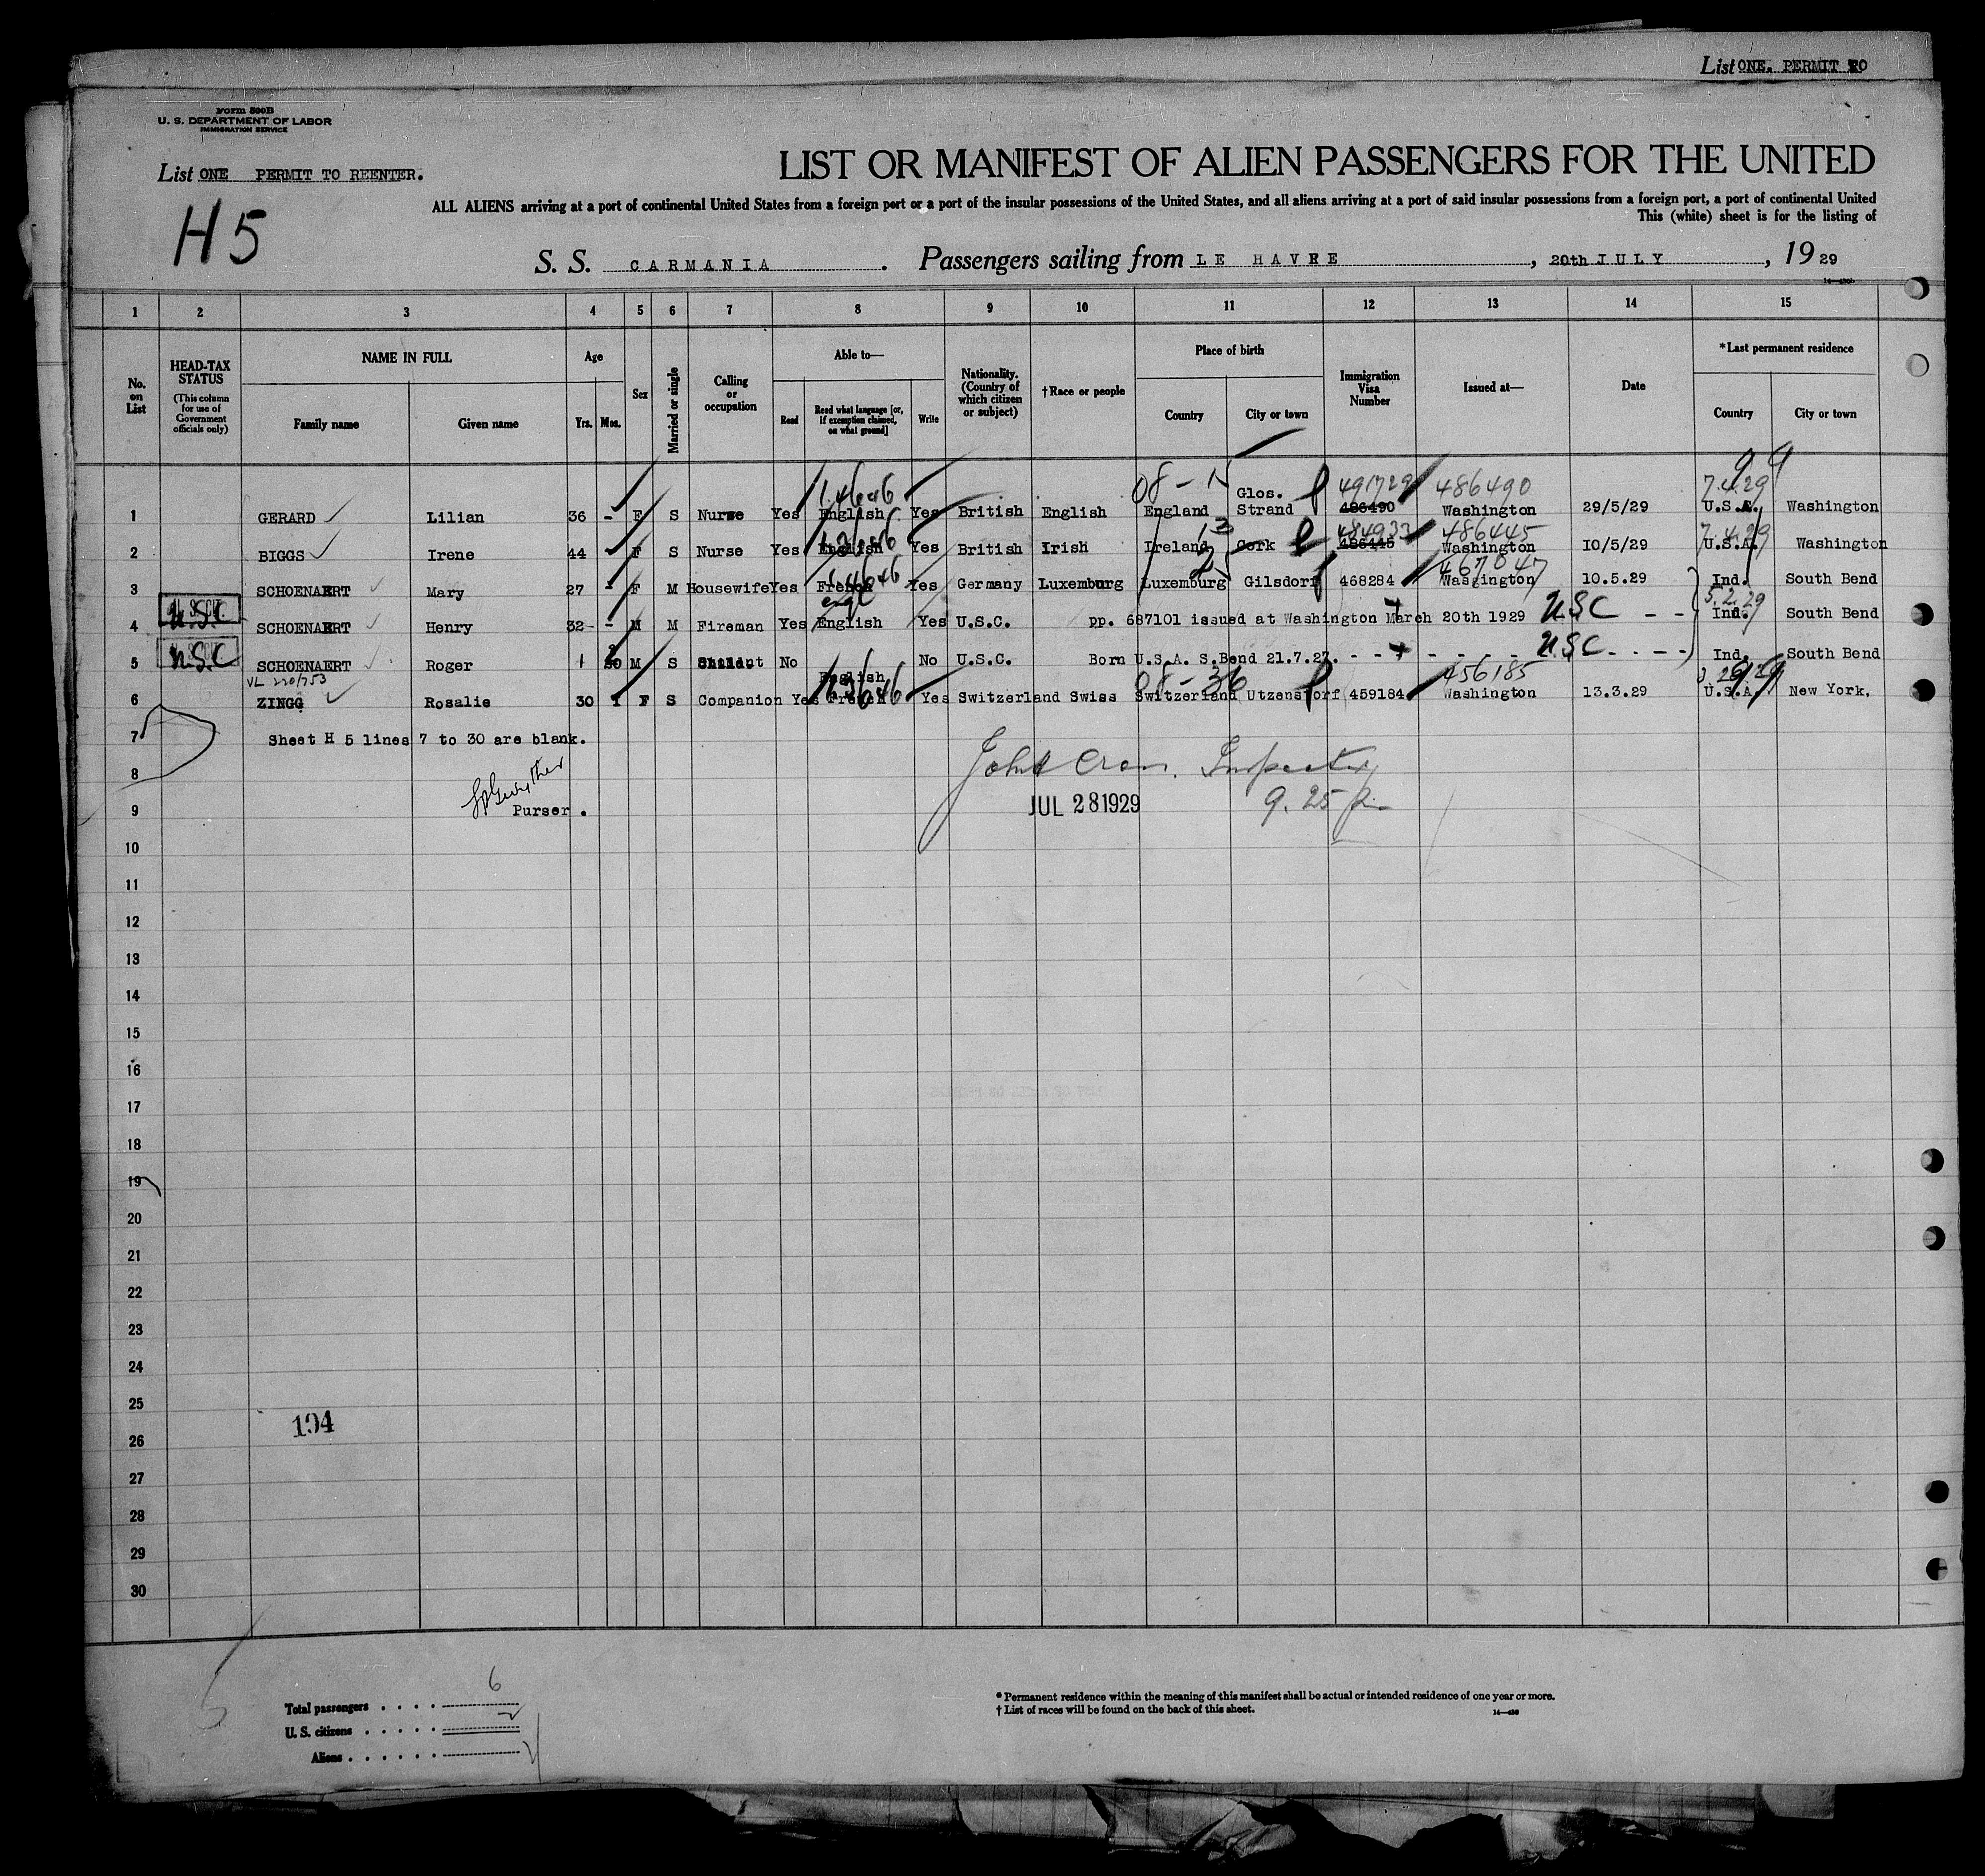 List ONE. PERMIT TO
Form 500B
U. S. DEPARTMENT OF LABOR
IMMIGRATION SERVICE
List ONE PERMIT TO REENTER.
H5
LIST OR MANIFEST OF ALIEN PASSENGERS FOR THE UNITED
ALL ALIENS arriving at a port of continental United States from a foreign port or a port of the insular possessions of the United States, and all aliens arriving at a port of said insular possessions from a foreign port, a port of continental United
This (white) sheet is for the listing of
S. S. CARMANIA. Passengers sailing from LE HAVRE, 20th JULY, 1929
1 2 3 4 5 6 7 8 9 10 11 12 13 14 15
No. on List
HEAD-TAX STATUS (This column for use of Government officials only)
NAME IN FULL
Family name Given name
Age
Yrs. Mos.
Sex
Married or single
Calling or occupation
Able to—
Read Read what language [or, if exemption claimed, on what ground] Write
Nationality. (Country of which citizen or subject)
†Race or people
Place of birth
Country City or town
Immigration Visa Number
Issued at—
Date
*Last permanent residence
Country City or town
08-1 491729 486490 7.4.29
1 GERARD Lilian 36 - F S Nurse Yes English Yes British English England Glos. Strand 486490 Washington 29/5/29 U.S.A. Washington
484933 486445 7.4.29
2 BIGGS Irene 44 F S Nurse Yes English Yes British Irish Ireland Cork 486445 Washington 10/5/29 U.S.A. Washington
467047
3 SCHOENAERT Mary 27 - F M Housewife Yes French Yes Germany Luxemburg Luxemburg Gilsdorf 468284 Washington 10.5.29 Ind. South Bend
engl 5.2.29
4 U.S.C SCHOENAERT Henry 32 - M M Fireman Yes English Yes U.S.C. pp. 687101 issued at Washington March 20th 1929 USC - - Ind. South Bend
5 U.S.C SCHOENAERT Roger 1 M S No No U.S.C. Born U.S.A. S.Bend 21.7.27. - - - - - - USC - - - - Ind. South Bend
VL 220/753 English 08-36 456185
6 ZINGG Rosalie 30 1 F S Companion Yes French Yes Switzerland Swiss Switzerland Utzenstorf 459184 Washington 13.3.29 U.S.A. New York.
7 Sheet H 5 lines 7 to 30 are blank.
8
Inspector
9 Purser. JUL 28 1929 9.25
10
11
12
13
14
15
16
17
18
19
20
21
22
23
24
25
194
26
27
28
29
30
Total passengers . . . . 6
U. S. citizens . . . . .
Aliens . . . . . .
* Permanent residence within the meaning of this manifest shall be actual or intended residence of one year or more.
† List of races will be found on the back of this sheet.